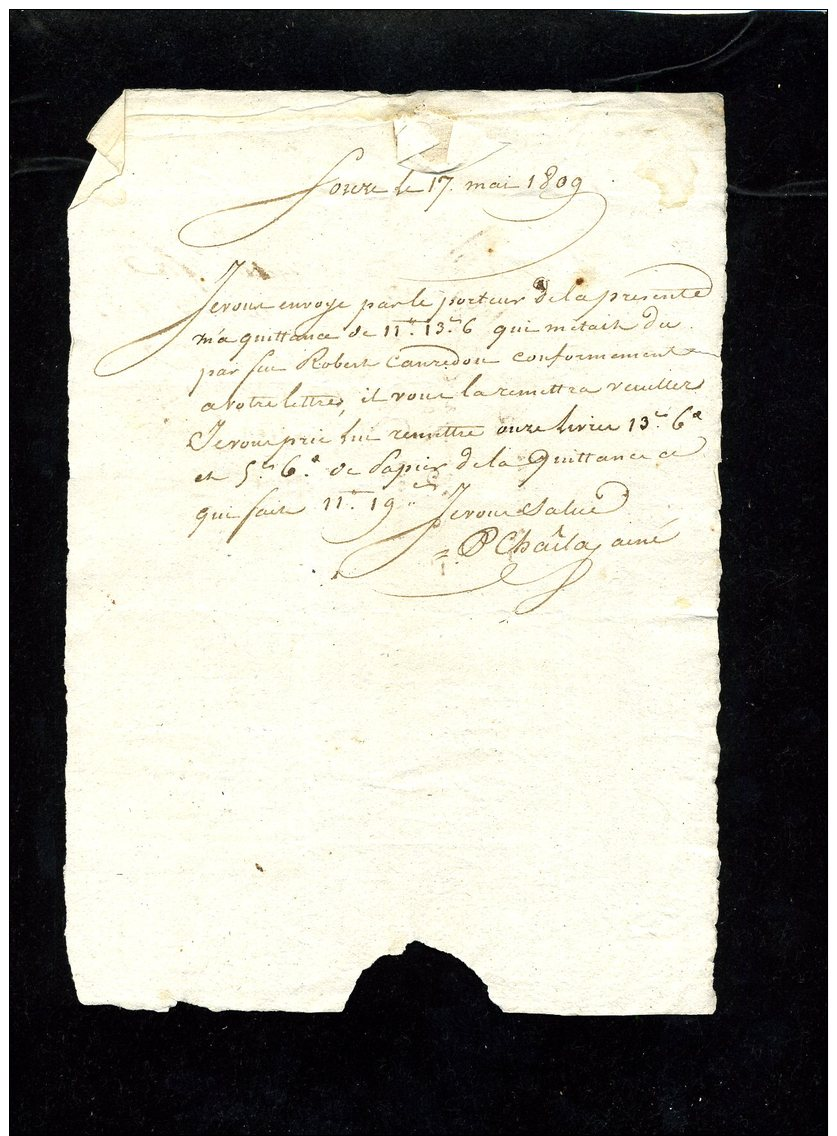 le 17. mai 1809
Je vous envoye par le porteur de la presente
ma quittance de 11ᵗᵗ 13ˢ 6 qui metait du
par feu Robert conformement
a votre lettre, il vous la remettra veuillez
Je vous prie lui remettre onze livres 13ˢ 6ᵈ
et 5ˢ 6ᵈ de Papier de la Quittance ce
qui fait 11ᵗᵗ 19ˢ
Je vous Salue
ainé